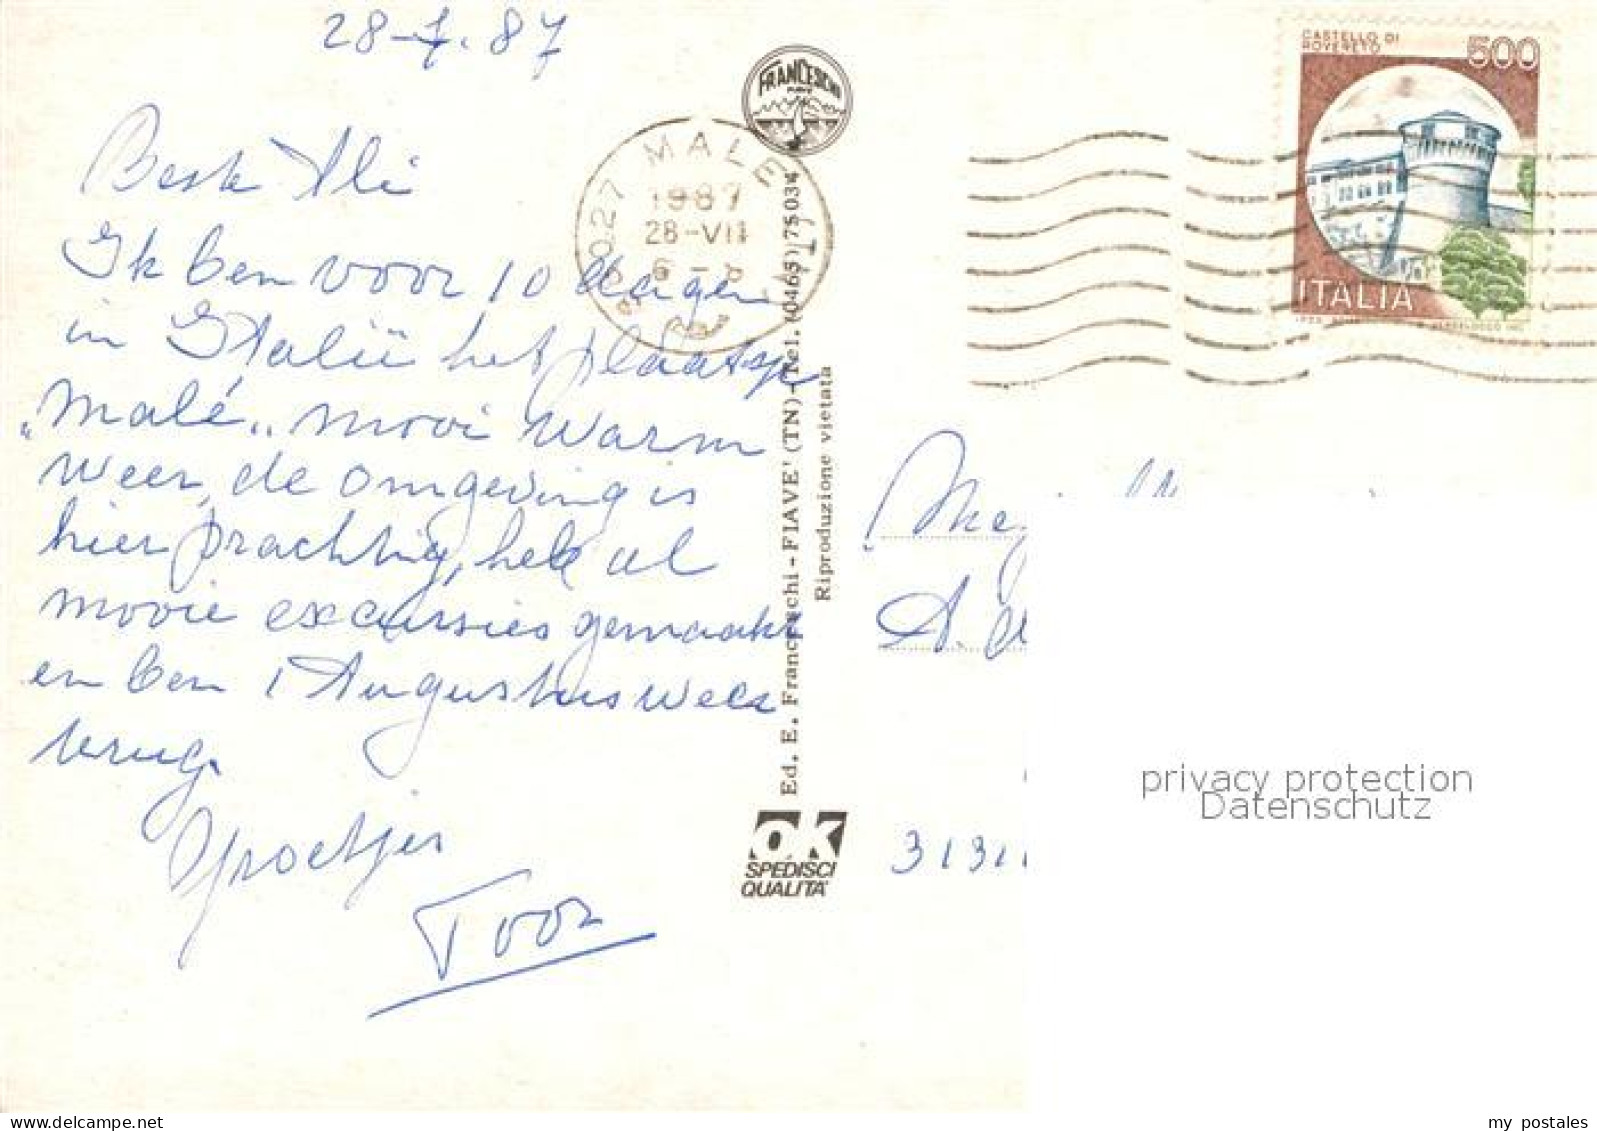 28-7.87
CASTELLO DI
ROVERETO
500
ITALIA
FRANCESCHI
FIAVE
38027 MALE
1987
28-VII
Beste Ali
Ik ben voor 10 dagen
in Italië het plaatsje
„Malé„ mooi warm
weer, de omgeving is
hier prachtig, heb al
mooie excursies gemaakt
en ben 1 Augustus weer
terug.
Groetjes
Toon
Ed. E. Franceschi - FIAVE' (TN) - Tel. (0465) 75034
Riproduzione vietata
OK
SPEDISCI
QUALITA'
Mej
A. d
3131
privacy protection
Datenschutz
my postales